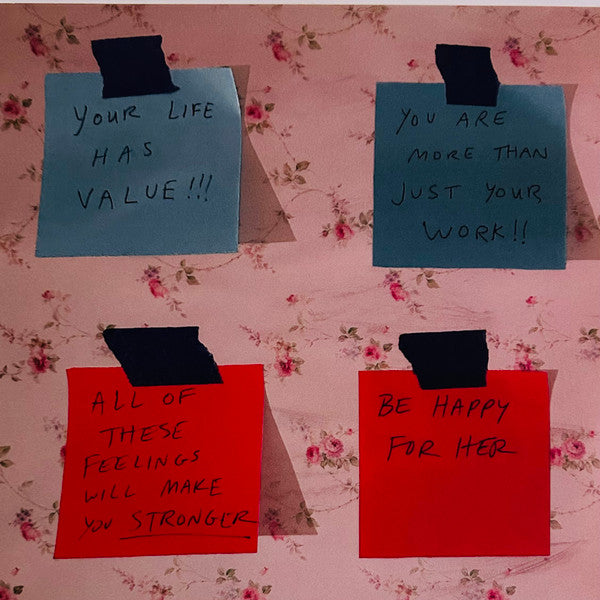 YOUR LIFE
HAS
VALUE!!!
YOU ARE
MORE THAN
JUST YOUR
WORK!!
ALL OF
THESE
FEELINGS
WILL MAKE
YOU STRONGER
BE HAPPY
FOR HER